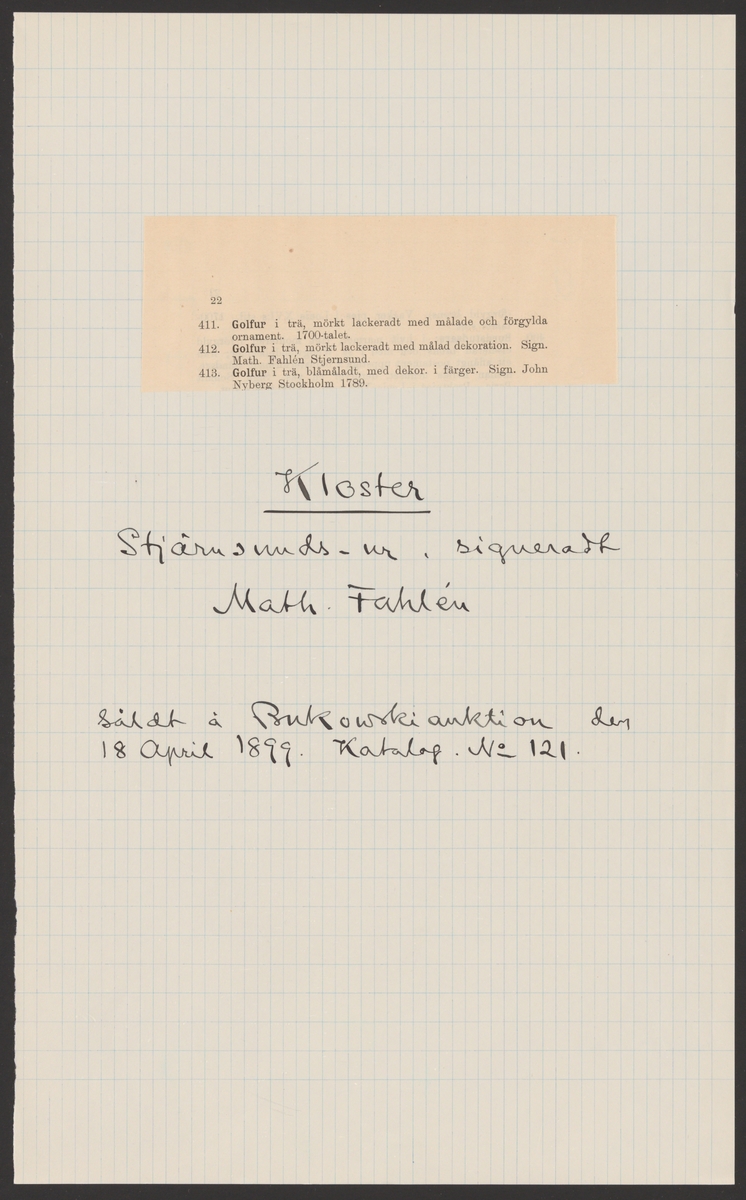 22
411. Golfur i trä, mörkt lackeradt med målade och förgylda
ornament. 1700-talet.
412. Golfur i trä, mörkt lackeradt med målad dekoration. Sign.
Math. Fahlén Stjernsund.
413. Golfur i trä, blåmåladt, med dekor. i färger. Sign. John
Nyberg Stockholm 1789.
Kloster
Stjärnsunds-ur, signeradt
Math. Fahlén
Såldt å Bukowskiauktion den
18 April 1899. Katalog. No 121.